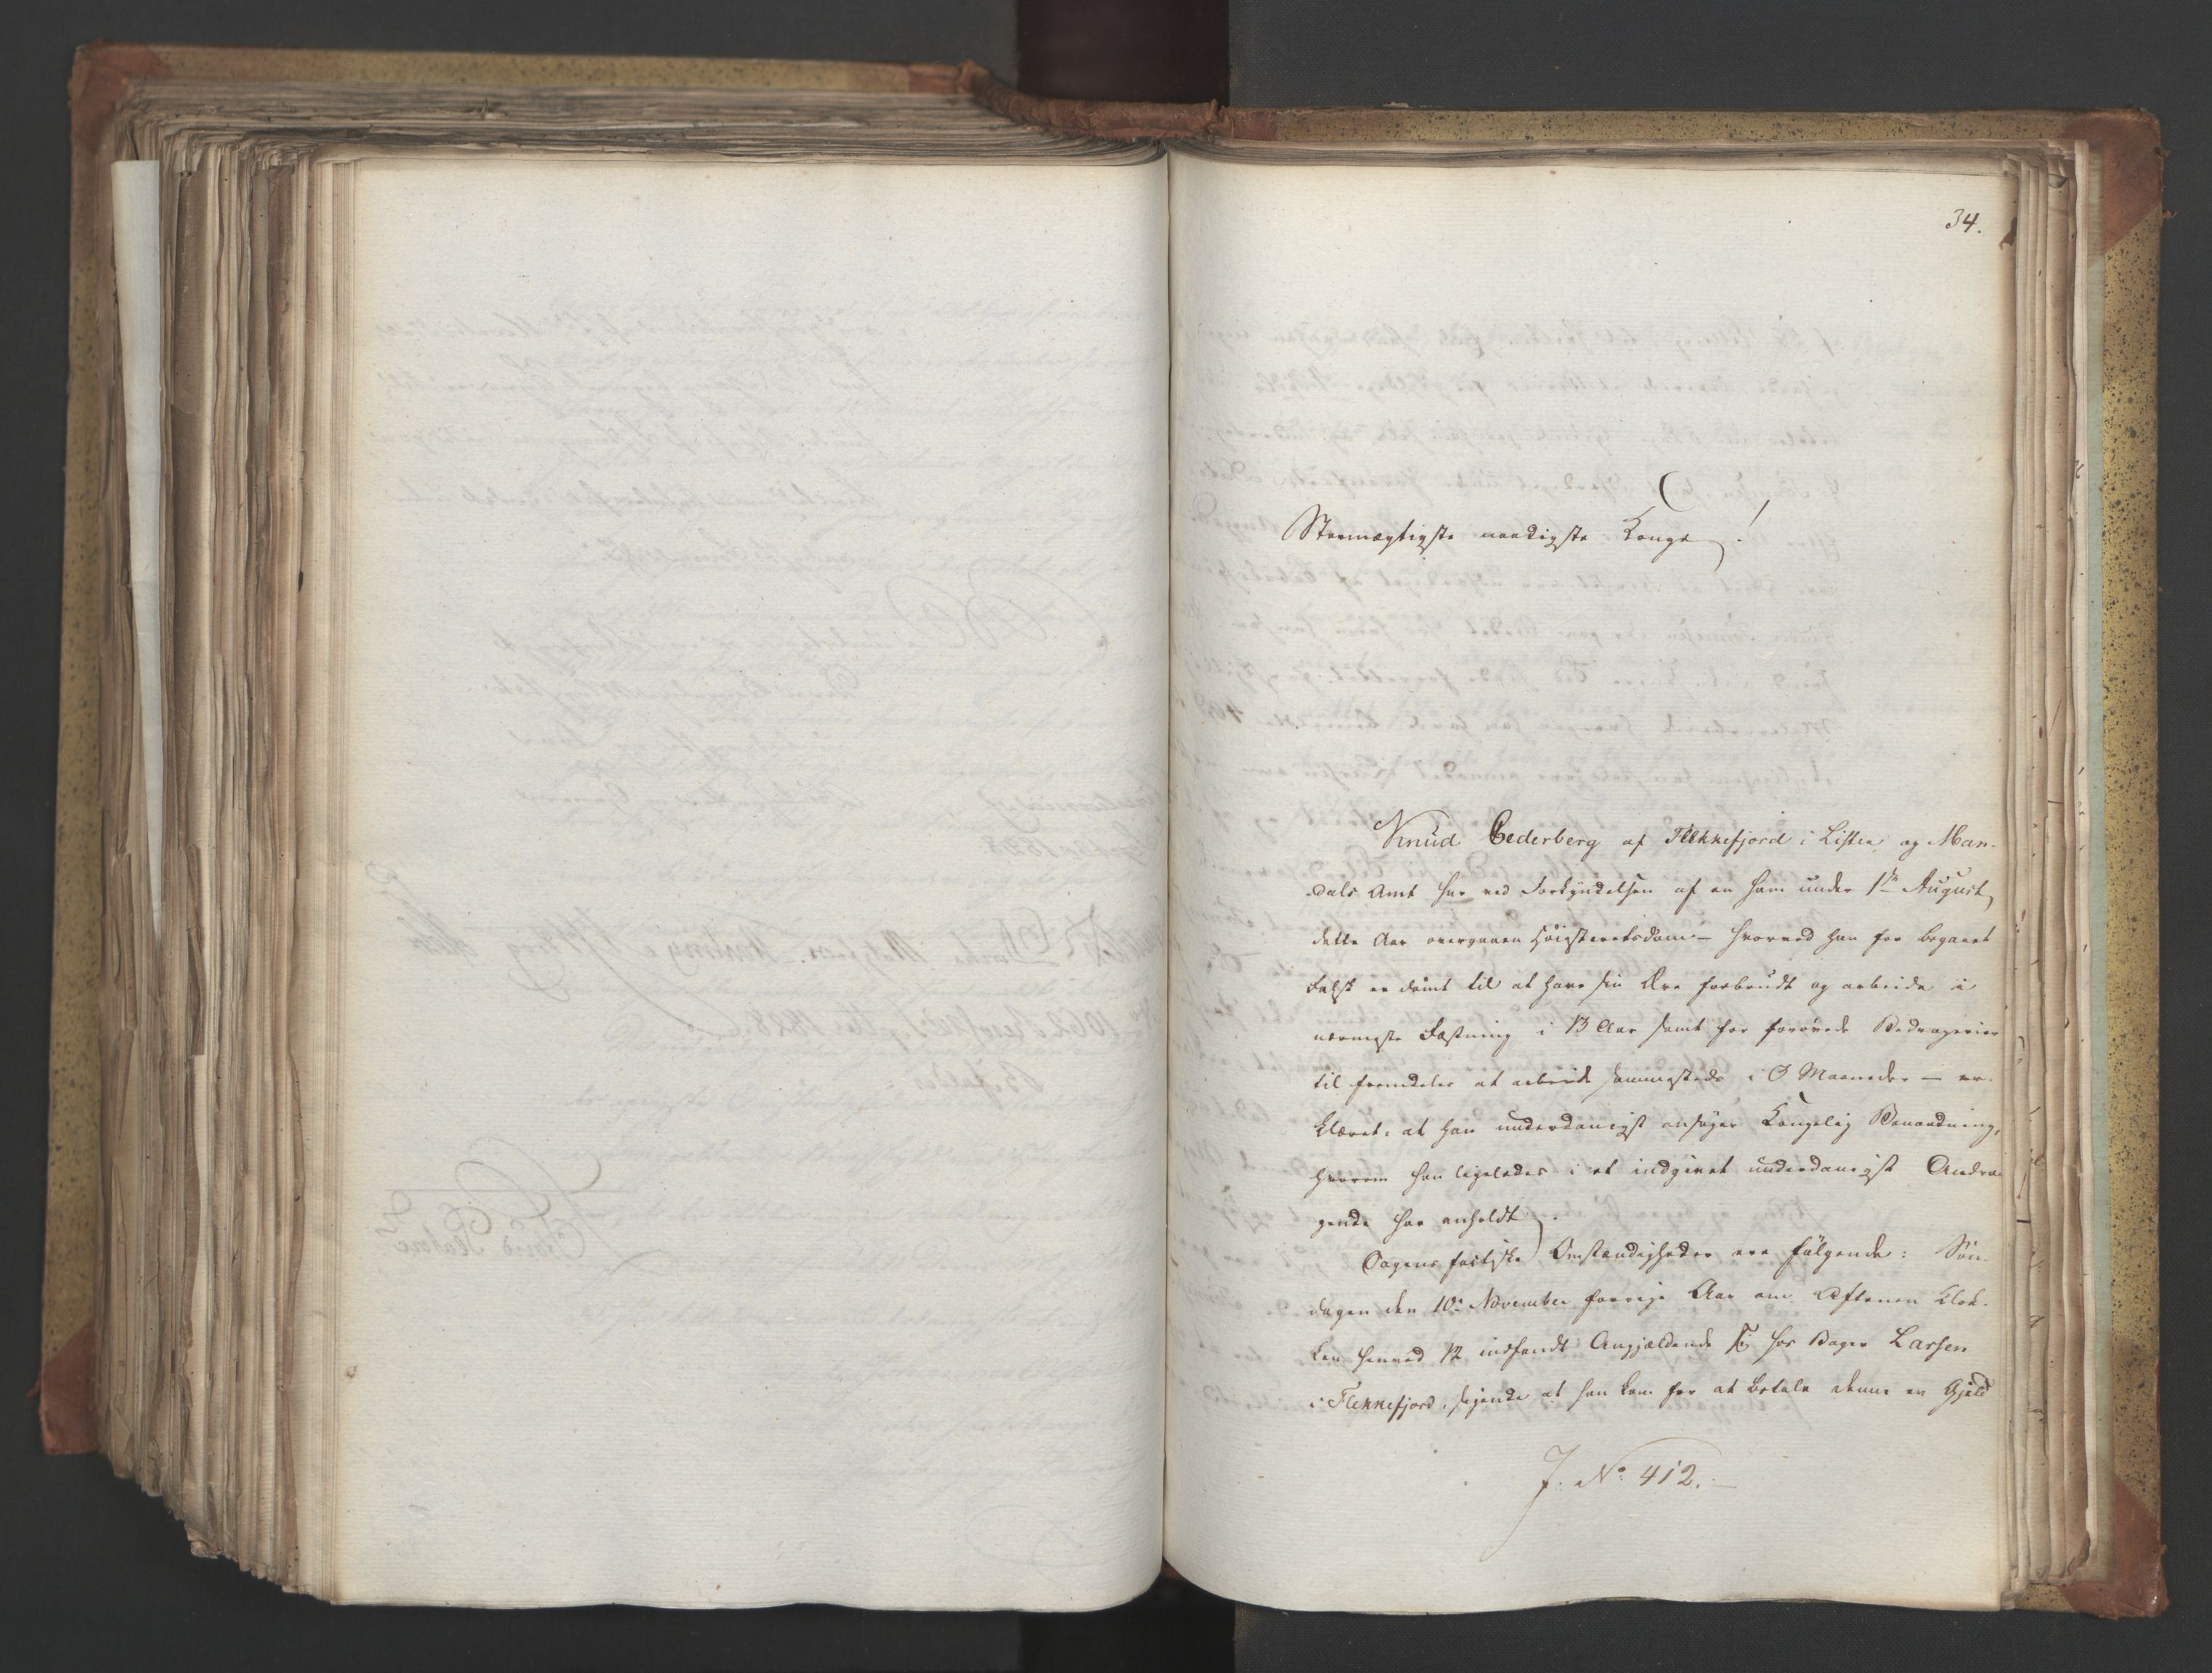 34.
Stormægtigste naadigste Konge!
Knud Cederberg af Flekkefjord i Lister og Man-
dals Amt har ved Forkyndelsen af en ham under 1ste August
dette Aar overgaaen Høiesteretsdom – hvorved han for begaaet
Falsk er dømt til at have sin Ære forbrudt og arbeide i
nærmeste Fæstning i 13 Aar samt for forøvede Bedragerier
til fremdeles at arbeide sammesteds i 8 Maaneder – er-
klæret, at han underdanigst ansøger Kongelig Benaadning,
hvorom han ligeledes i et indgivet underdanigst Andra-
gende har anholdt.
Sagens factiske Omstændigheder ere følgende: Søn-
dagen den 10de November forrige Aar om Aftenen Klok-
ken henved 12 indfandt Angjældende sig hos Bager Larsen
i Flekkefjord, sigende at han kom for at betale denne en Gjæld
J. No 412.